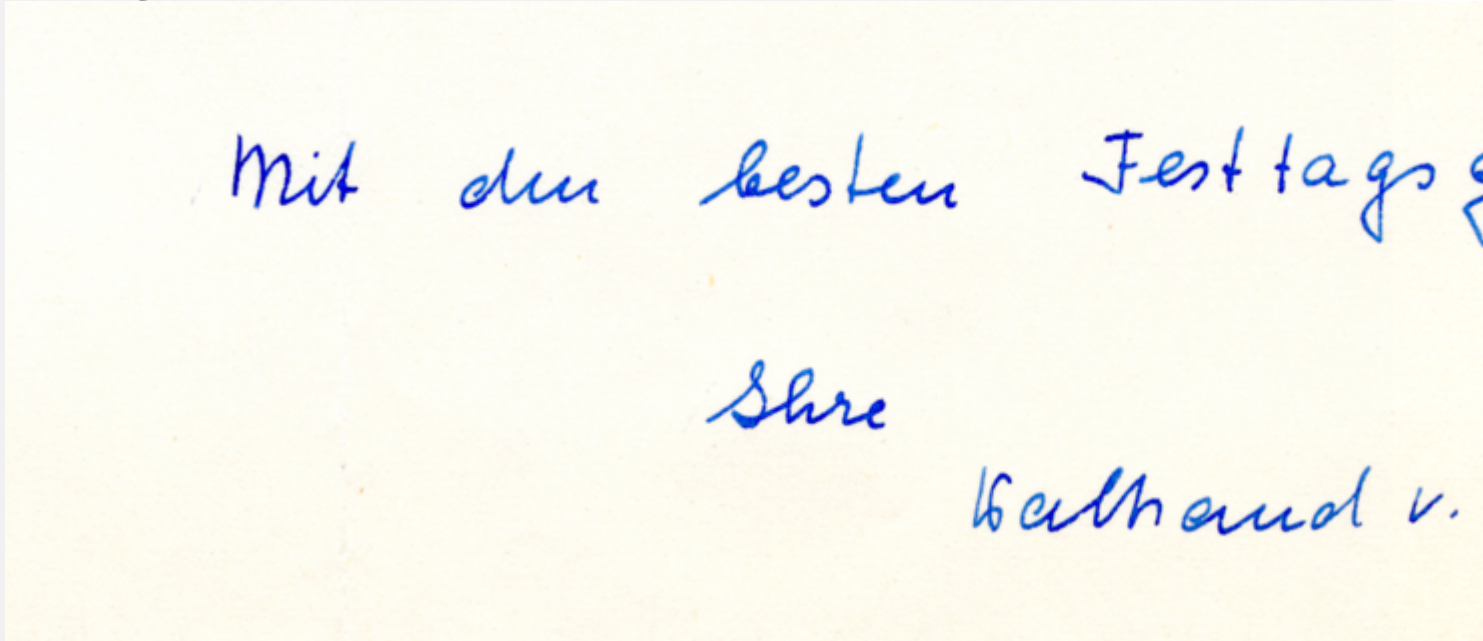 Mit den besten Festtagsg
Ihre
Waltraud v.